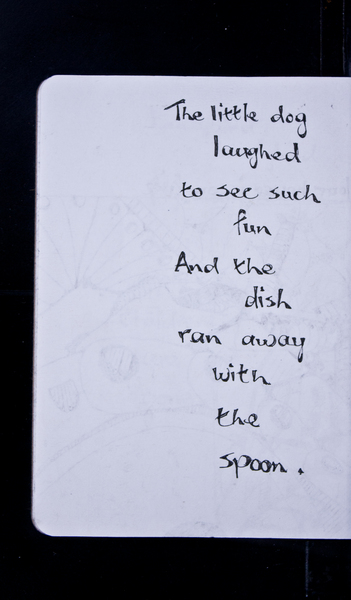 The little dog
laughed
to see such
fun
And the
dish
ran away
with
the
spoon.